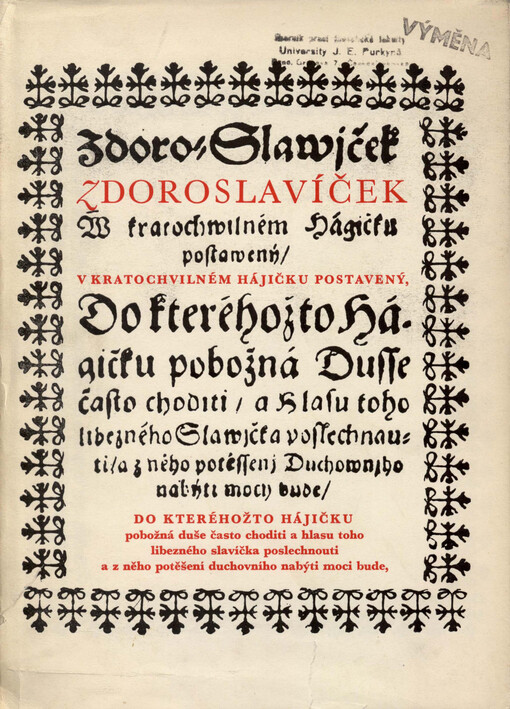 Sborník prací filosofické fakulty
University J. E. Purkyně
VÝMĚNA
Zdoro-Slawjček
ZDOROSLAVÍČEK
W kratochwilném Hágičku
postawený/
V KRATOCHVILNÉM HÁJIČKU POSTAVENÝ,
Do kteréhožto Há-
gičku pobožná Dusse
často choditi / a Hlasu toho
libezného Slawjčka poslechnau-
ti/ a z něho potěssenj Duchownjho
nabýti mocy bude/
DO KTERÉHOŽTO HÁJIČKU
pobožná duše často choditi a hlasu toho
libezného slavíčka poslechnouti
a z něho potěšení duchovního nabýti moci bude,